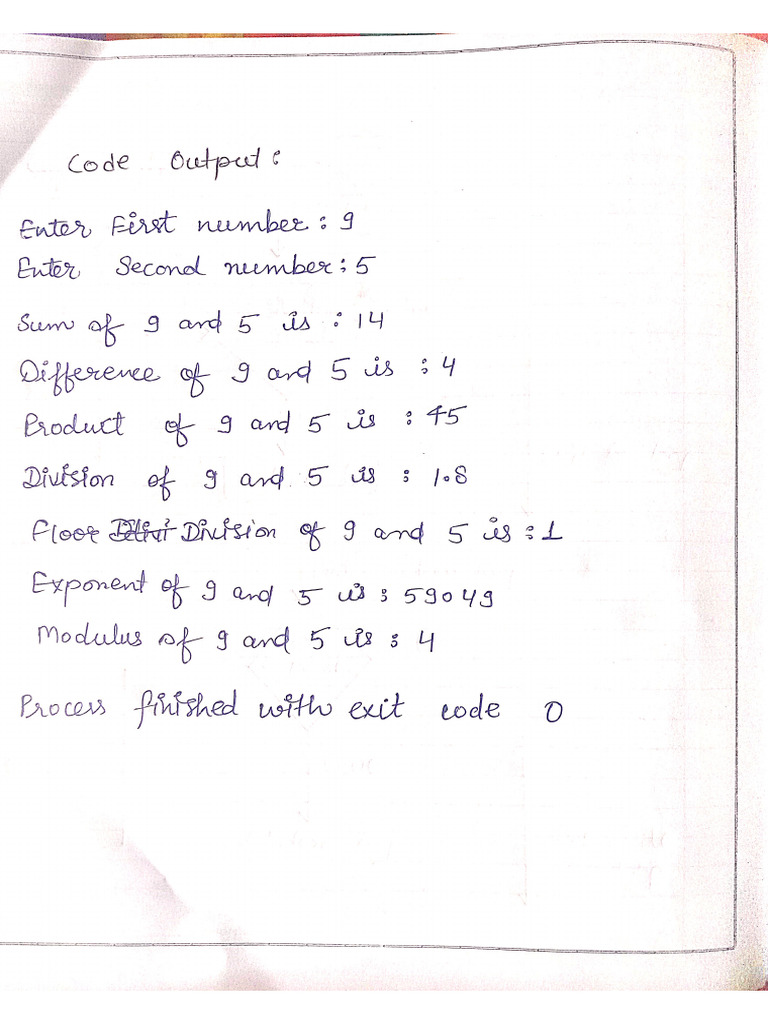 Code Output:
Enter First number: 9
Enter Second number: 5
Sum of 9 and 5 is : 14
Difference of 9 and 5 is : 4
Product of 9 and 5 is : 45
Division of 9 and 5 is : 1.8
Floor Division of 9 and 5 is : 1
Exponent of 9 and 5 is : 59049
Modulus of 9 and 5 is : 4
Process finished with exit code 0